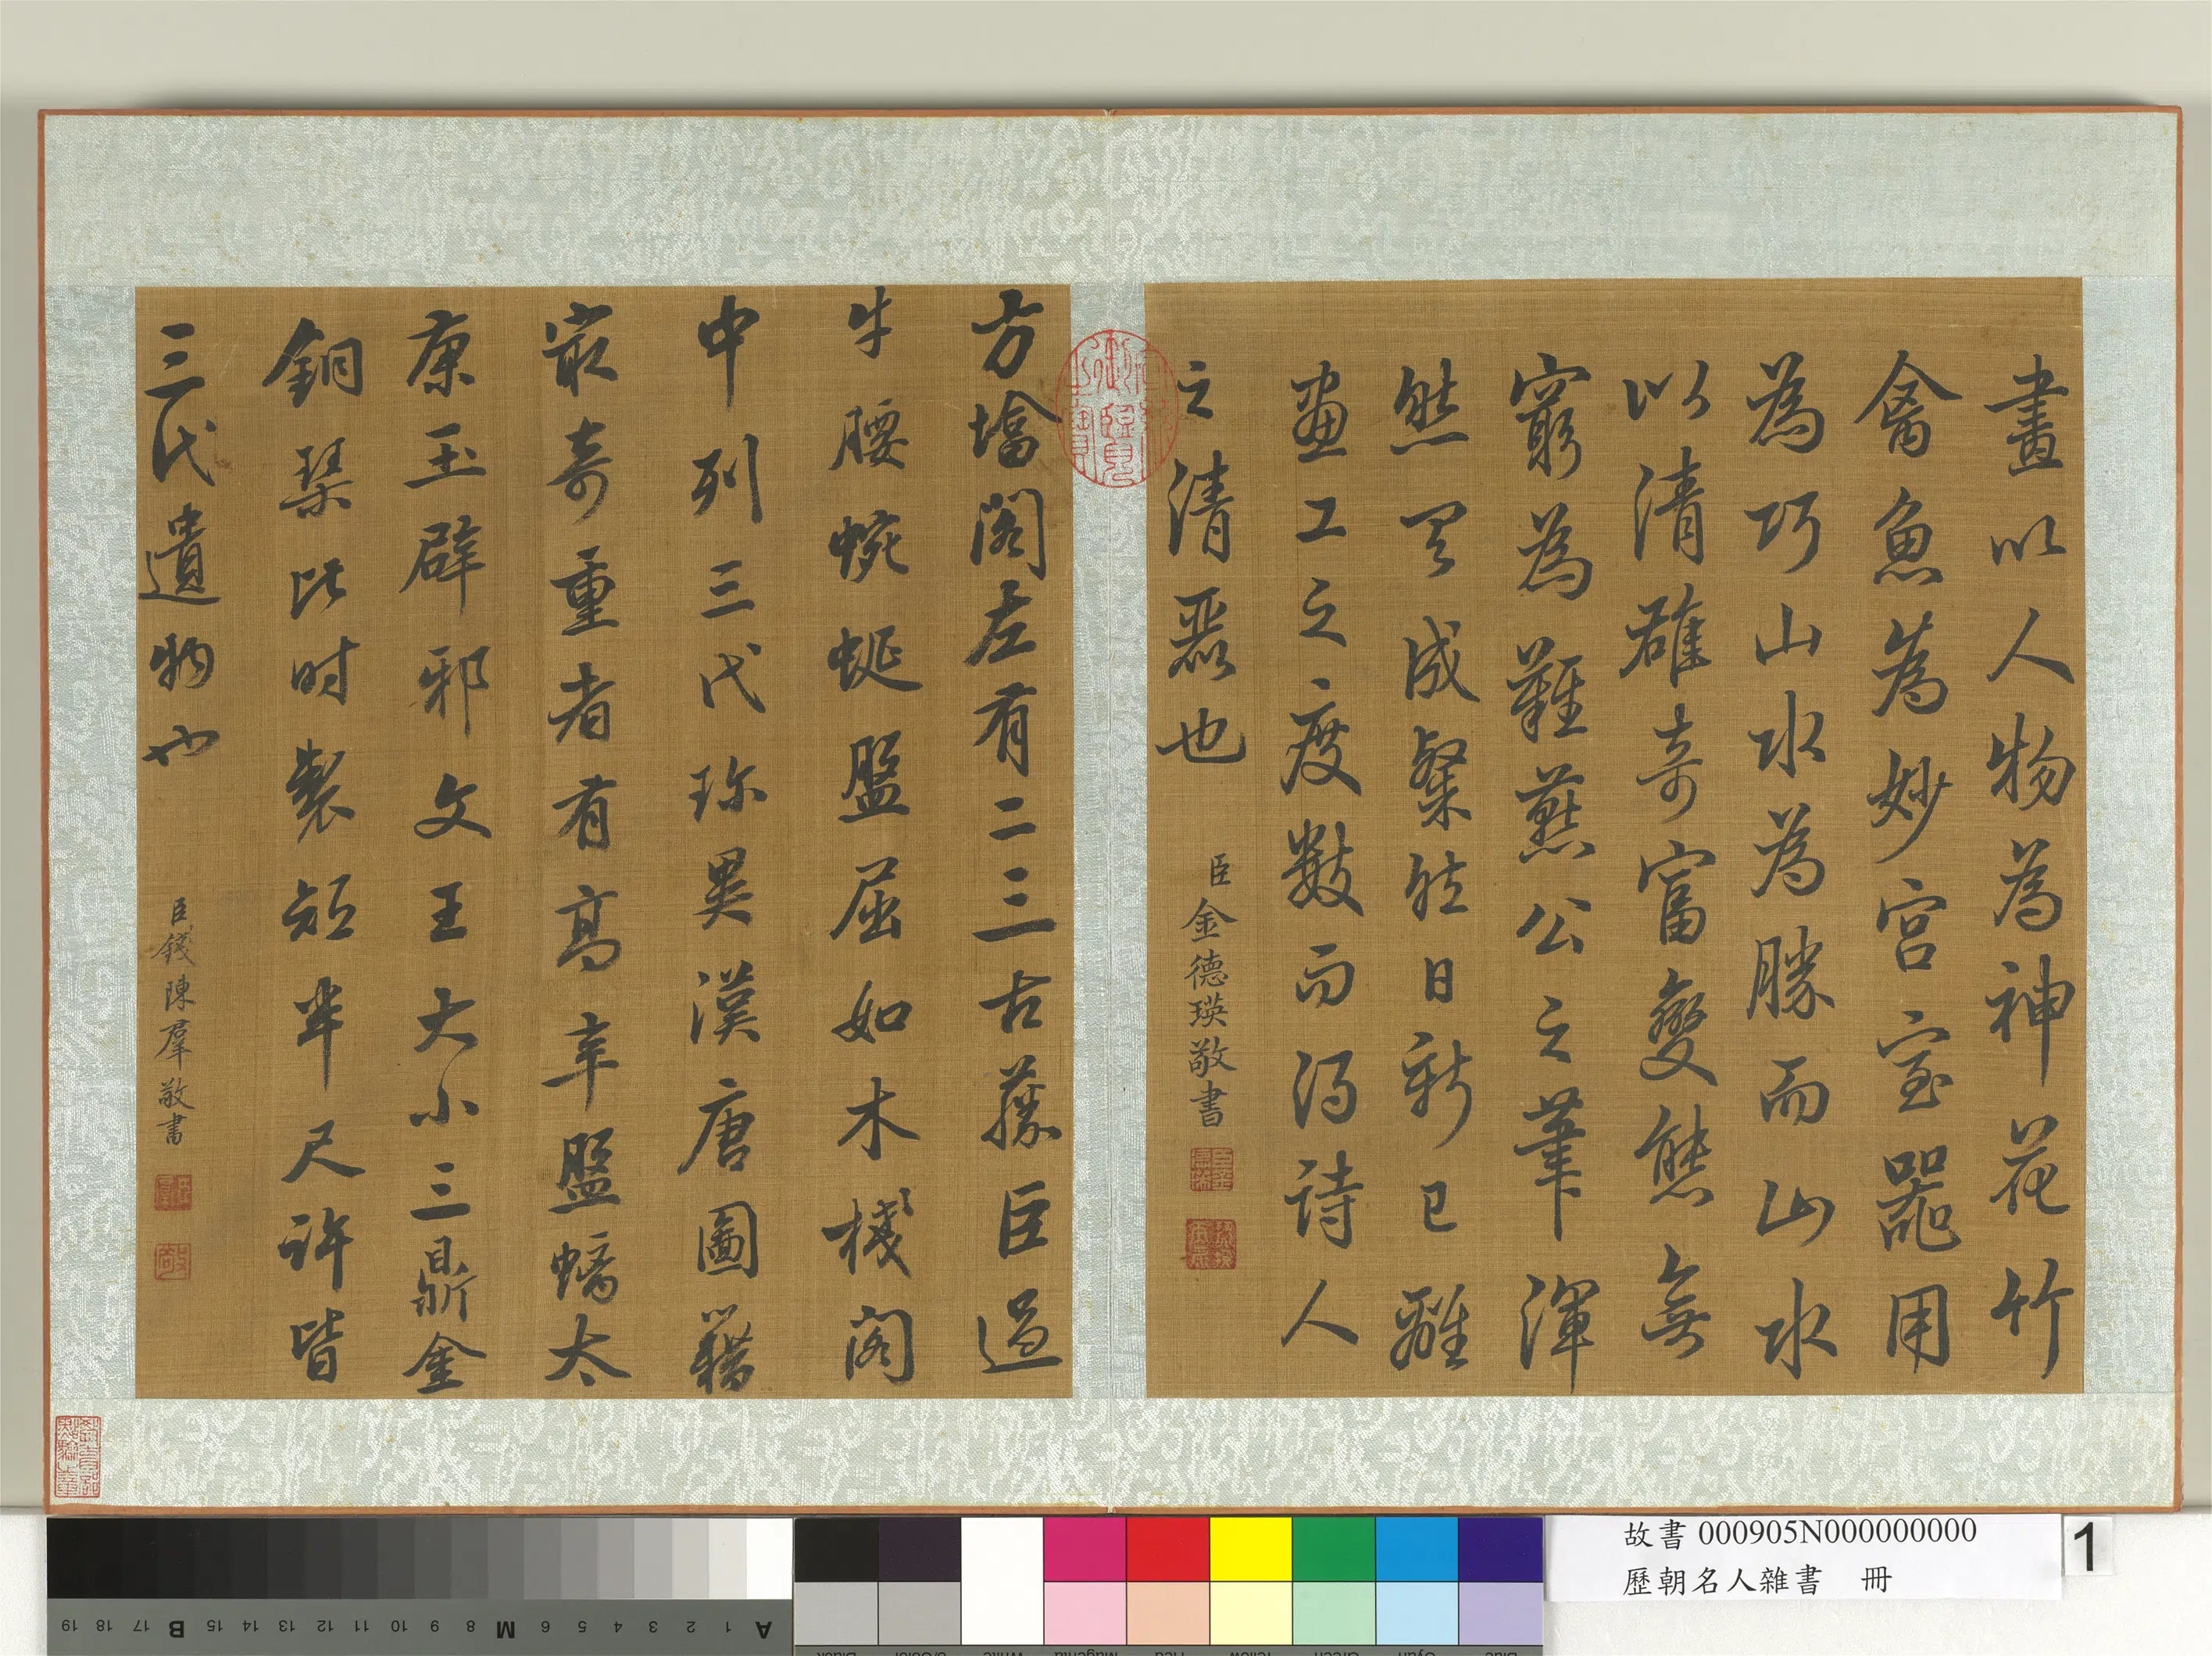 畫以人物為神花竹
禽魚為妙宮室器用
為巧山水為勝而山水
以清雄奇富變態無
窮為難燕公之筆渾
然天成粲然日新已離
畫工之度數而得詩人
之清麗也
臣金德瑛敬書
方墖閣左有二三古藤巨過
牛腰蜿蜒盤屈如木棧閣
中列三代珍異漢唐圖籍
最奇重者有高辛盤蟠太
康玉辟邪文王大小三鼎金
銅琹比时製短半尺許皆
三代遺物也
臣錢陳羣敬書
故書 000905N000000000
歷朝名人雜書 冊
1
19 18 17 B 15 14 13 12 11 10 9 8 M 6 5 4 3 2 1 A